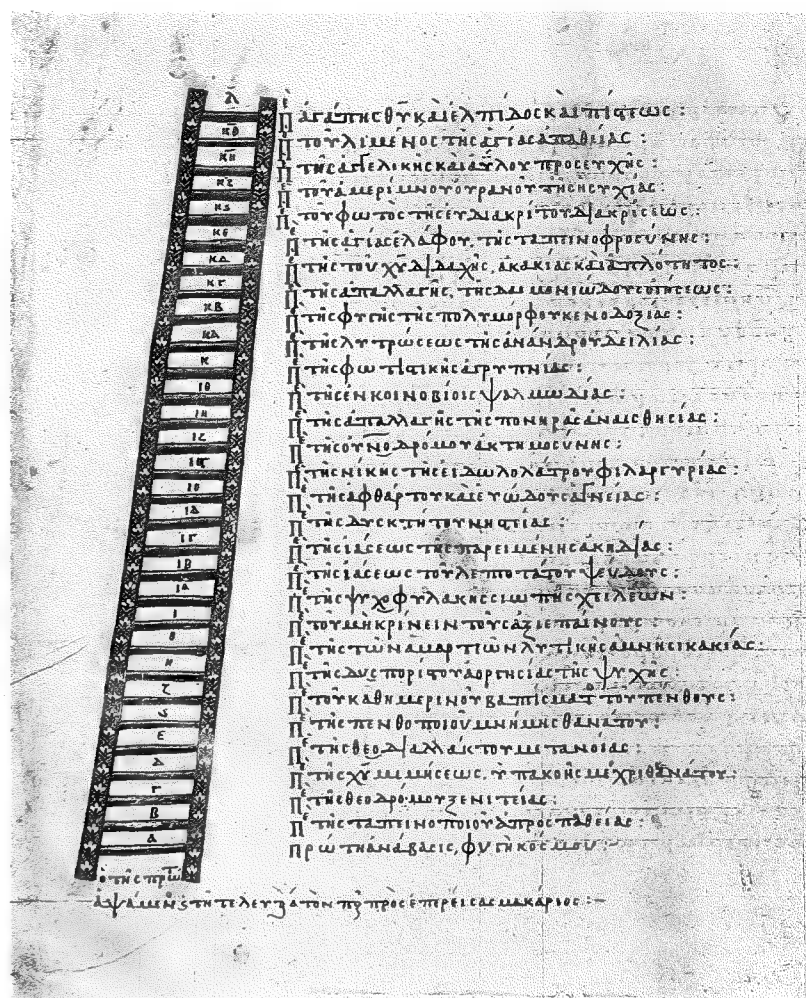 λ̄
κθ
κη
κζ
κϛ
κε
κδ
κγ
κβ
κα
κ
ιθ
ιη
ιζ
ιϛ
ιε
ιδ
ιγ
ιβ
ια
ι
θ
η
ζ
ϛ
ε
δ
γ
β
α
Πε ἀγάπης θ̅υ̅ καὶ ἐλπίδος καὶ πίστεως :
Πε τοῦ λιμένος τῆς ἁγίας ἀπαθείας :
Πε τῆς ἀγγελικῆς καὶ ἀΰλου προσευχῆς :
Πε τοῦ ἀμερίμνου οὐρανοῦ τῆς ἡσυχίας :
Πε τοῦ φωτὸς τῆς εὐδιακρίτου διακρίσεως :
Πε τῆς ἁγίας ἐλάφου, τῆς ταπινοφροσύνης :
Πε τῆς τοῦ χ̅υ̅ διδαχῆς, ἀκακίας καὶ ἁπλότητος :
Πε τῆς ἀπαλλαγῆς, τῆς δαιμονιώδους οἰήσεως :
Πε τῆς φυγῆς τῆς πολυμόρφου κενοδοξίας :
Πε τῆς λυτρώσεως τῆς ἀνάνδρου δειλίας :
Πε τῆς φωτιστικῆς ἀγρυπνίας :
Πε τῆς ἐν κοινοβίοις ψαλμωδίας :
Πε τῆς ἀπαλλαγῆς τῆς πονηρᾶς ἀναισθησίας :
Πε τῆς οὐνοδρόμου ἀκτημοσύνης :
Πε τῆς νίκης τῆς εἰδωλολάτρου φιλαργυρίας :
Πε τῆς ἀφθάρτου καὶ εὐώδους ἁγνείας :
Πε τῆς δυσκτήτου νηστίας :
Πε τῆς ἰάσεως τῆς παρειμένης ἀκηδίας :
Πε τῆς ἰάσεως τοῦ λεπτοτάτου ψεύδους :
Πε τῆς ψυχοφυλακῆς σιωπῆς χειλέων :
Πε τοῦ μὴ κρίνειν τοὺς ἀξιεπαίνους :
Πε τῆς τῶν ἁμαρτιῶν λυτικῆς ἀμνησικακίας :
Πε τῆς δυσπορίστου ἀοργησίας τῆς ψυχῆς :
Πε τοῦ καθημερινοῦ βαπτίσματ τοῦ πένθους :
Πε τῆς πενθοποιοῦ μνήμης θανάτου :
Πε τῆς θεοδιαλλάκτου μετανοίας :
Πε τῆς χ̅υ̅ μιμήσεως, ὑπακοῆς μέχρι θανάτου :
Πε τῆς θεοδρόμου ξενιτείας :
Πε τῆς ταπεινοποιοῦ ἀπροσπαθείας :
Πρώτη ἀνάβασις, φυγὴ κόσμου :
ὁ τῆς πρώτ
ἁψάμενος τῇ τελευταία τὸν π̅ο̅δ προσεπερείσας μακάριος :–